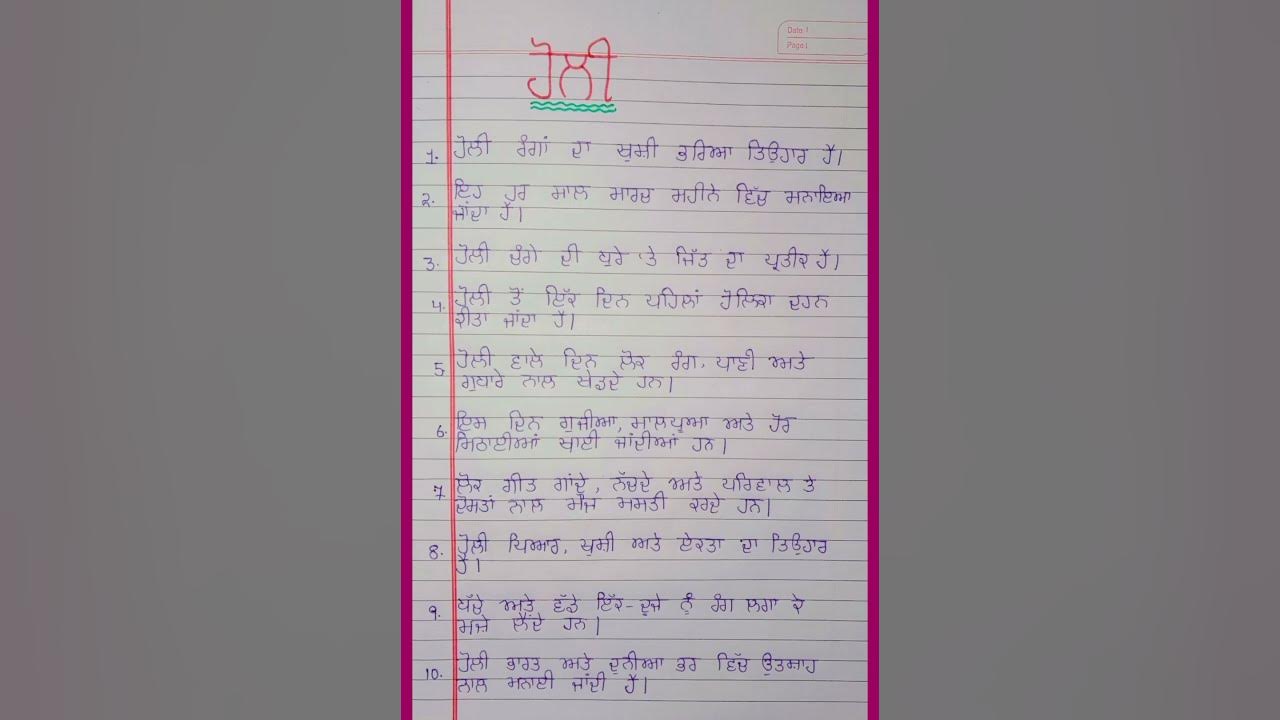 Date:
Page:
ਹੋਲੀ
1. ਹੋਲੀ ਰੰਗਾਂ ਦਾ ਖੁਸ਼ੀ ਭਰਿਆ ਤਿਉਹਾਰ ਹੈ।
2. ਇਹ ਹਰ ਸਾਲ ਮਾਰਚ ਮਹੀਨੇ ਵਿੱਚ ਮਨਾਇਆ
ਜਾਂਦਾ ਹੈ।
3. ਹੋਲੀ ਚੰਗੇ ਦੀ ਬੁਰੇ 'ਤੇ ਜਿੱਤ ਦਾ ਪ੍ਰਤੀਕ ਹੈ।
4. ਹੋਲੀ ਤੋਂ ਇੱਕ ਦਿਨ ਪਹਿਲਾਂ ਹੋਲਿਕਾ ਦਹਨ
ਕੀਤਾ ਜਾਂਦਾ ਹੈ।
5. ਹੋਲੀ ਵਾਲੇ ਦਿਨ ਲੋਕ ਰੰਗ, ਪਾਣੀ ਅਤੇ
ਗੁਬਾਰੇ ਨਾਲ ਖੇਡਦੇ ਹਨ।
6. ਇਸ ਦਿਨ ਗੁਜੀਆ, ਮਾਲਪੂਆ ਅਤੇ ਹੋਰ
ਮਿਠਾਈਆਂ ਖਾਈ ਜਾਂਦੀਆਂ ਹਨ।
7. ਲੋਕ ਗੀਤ ਗਾਂਦੇ, ਨੱਚਦੇ ਅਤੇ ਪਰਿਵਾਲ ਤੇ
ਦੋਸਤਾਂ ਨਾਲ ਮੌਜ ਮਸਤੀ ਕਰਦੇ ਹਨ।
8. ਹੋਲੀ ਪਿਆਰ, ਖੁਸ਼ੀ ਅਤੇ ਏਕਤਾ ਦਾ ਤਿਉਹਾਰ
ਹੈ।
9. ਬੱਚੇ ਅਤੇ ਵੱਡੇ ਇੱਕ-ਦੂਜੇ ਨੂੰ ਰੰਗ ਲਗਾ ਕੇ
ਮਜੇ ਲੈਂਦੇ ਹਨ।
10. ਹੋਲੀ ਭਾਰਤ ਅਤੇ ਦੁਨੀਆ ਭਰ ਵਿੱਚ ਉਤਸਾਹ
ਨਾਲ ਮਨਾਈ ਜਾਂਦੀ ਹੈ।